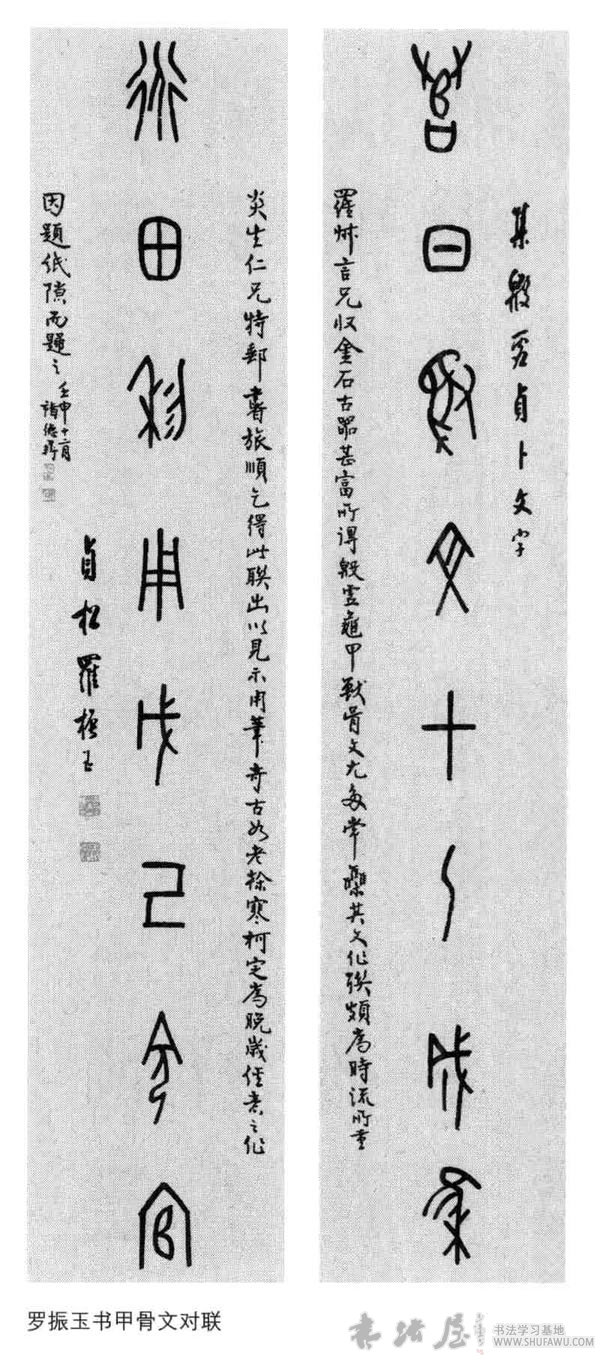 集殷虛貞卜文字
日爻甲乙成
羅叔言兄收金石古器甚富所得殷虛龜甲獸骨文尤多常集其文作聯頗為時流所重
炎生仁兄特郵書旅順乞得此聯出以見示用筆奇古如老榦寒柯定為晚歲經意之作
田利用戊己命官
因題紙隙而之壬申十二月
褚德彝
貞松羅振玉
罗振玉书甲骨文对联
书法屋
书法学习基地
WWW.SHUFAWU.COM